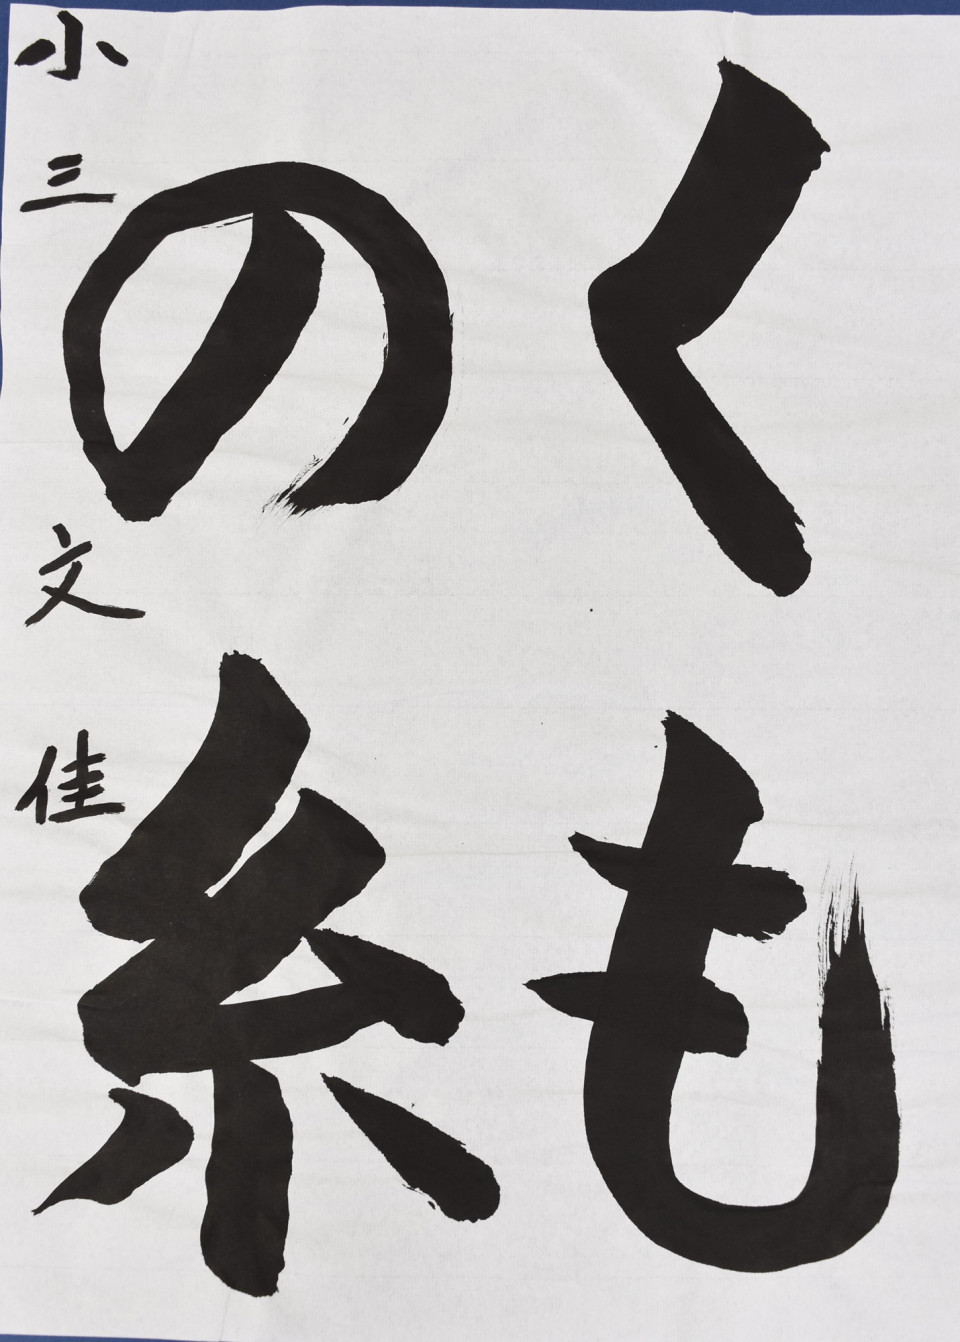 くも
の糸
小三 文佳